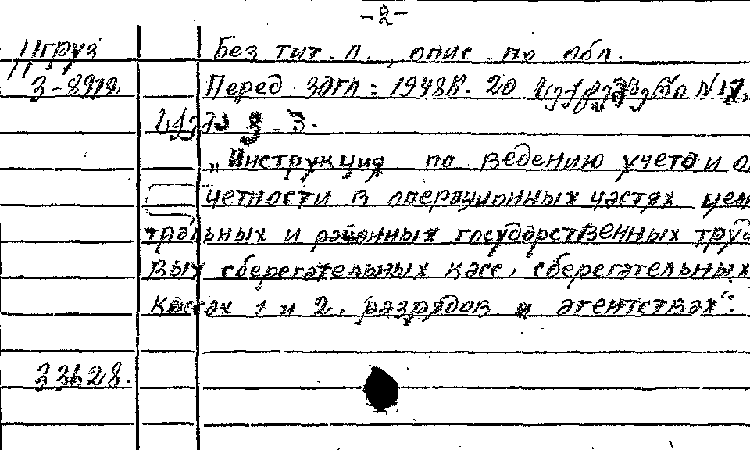 -2-
11груз Без тит. л., опис. по обл.
3-8972. Перед загл: 1948 г. 20 №17.
3.
„Инструкция по ведению учета и о
четности в операционных частях цен
тральных и районных государственных труд
вых сберегательных касс, сберегательных
кассах 1 и 2. разрядов и агентствах".
33628.